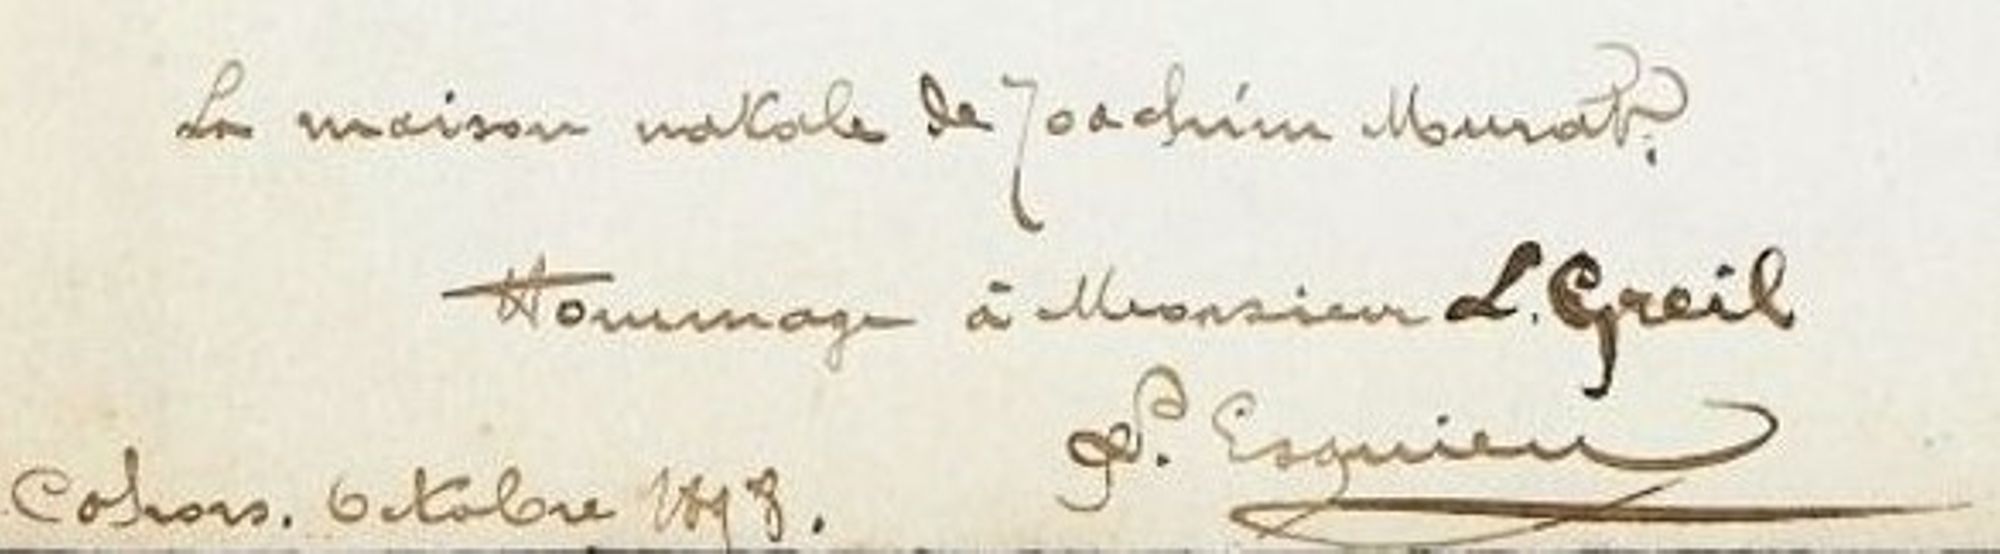 La maison natale de Joachim Murat.
Hommage à Monsieur L. Greil
P. Esquieu
Cahors. Octobre 1898.